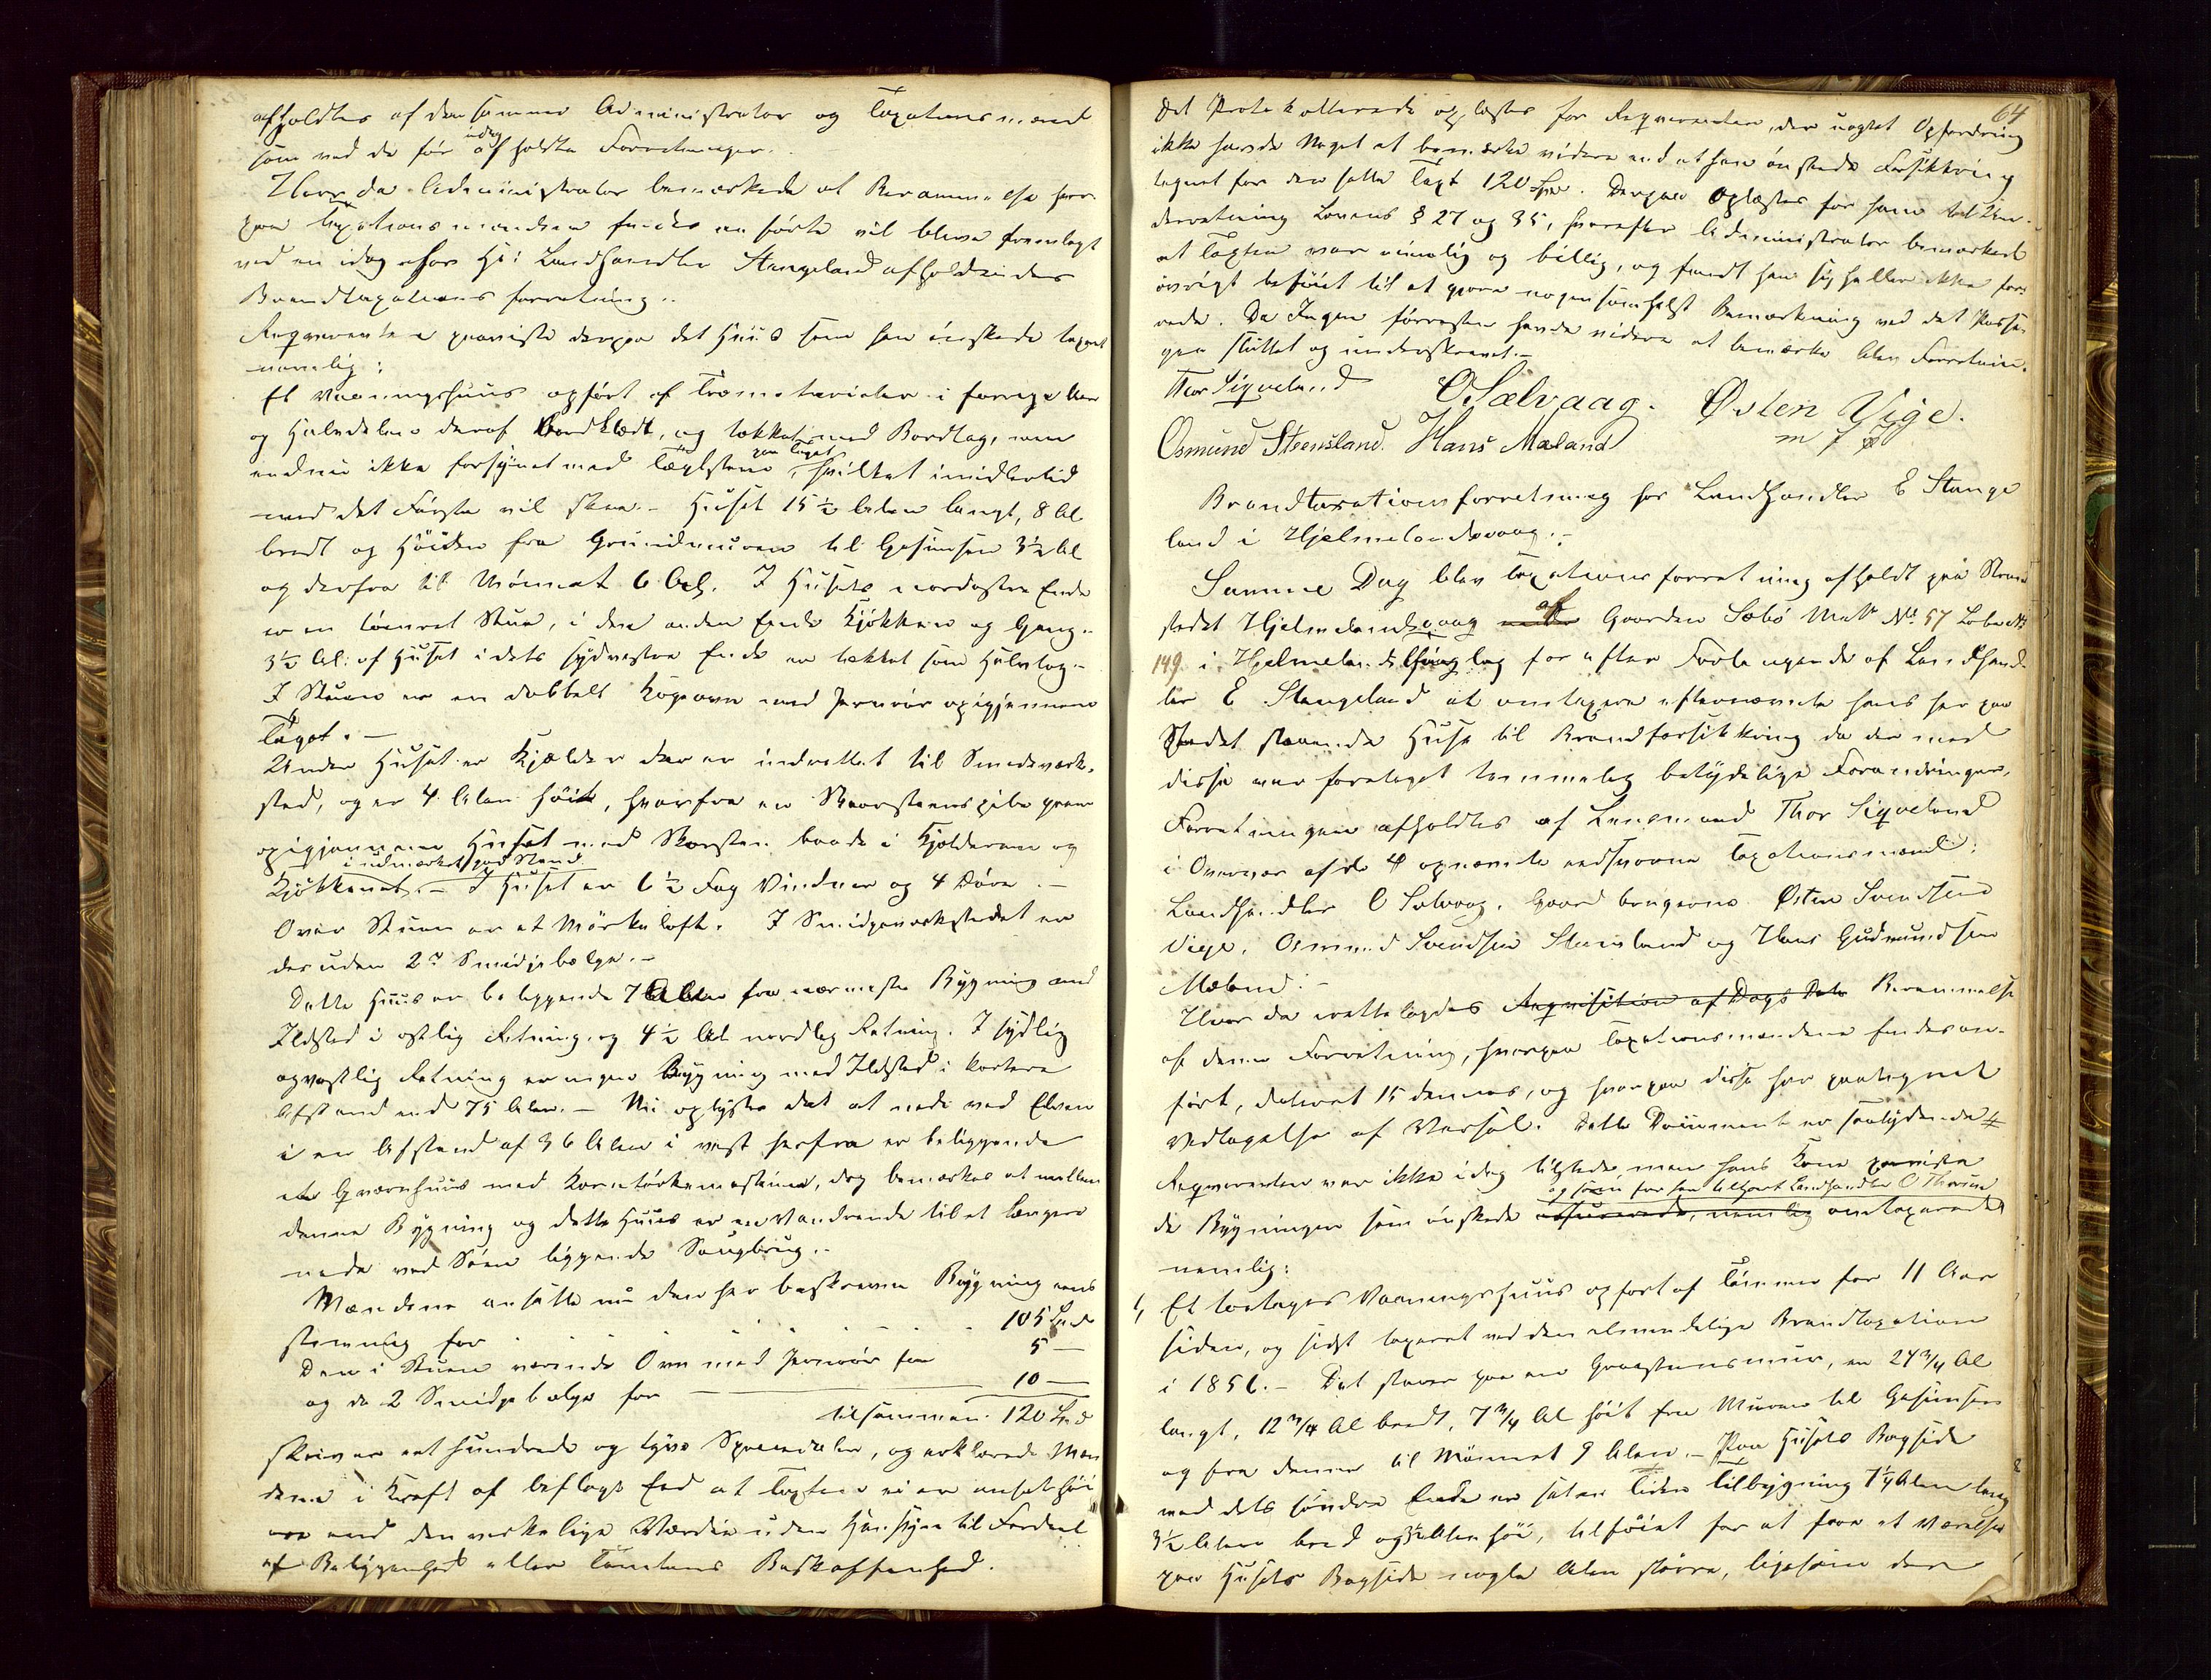 afholdtes af den samme Administrator og Taxationsmænd
som ved de før idag afholdte Forretninger.
Hvor da Administrator bemærkede at Berammelse hvor-
paa Taxationsmændene findes anførte vil blive fremlagt
ved en idag hos Hr: Landhandler Stangeland afholdendes
Brandtaxations forretning..
Requirenten paaviste derpaa det Huus som han ønskede taxeret
nemlig:
Et Vaaningshuus opført af Træmaterialer i forrige Aar
og Halvdelen deraf Bordklædt, og tækket med Bordtag, men
endnu ikke forsynet med Tæglsteen paa Taget, hvilket imidlertid
med det Første vil skee.- Huset 15 ½ Alen langt, 8 Al
bredt og Høiden fra Grundmuren til Gesimsen 3½ Al
og derfra til Mønnet 6 Al. I Husets nordøstre Ende
er en tømret Stue, i den anden Ende Kjøkken og Gang.-
3½ Al: af Huset i dets sydvestre Ende er tækket som Halvtag.-
I Stuen er en dobbelt Kogeovn med Jernrør opigjennem
Taget. -
Under Huset er Kjælder der er indrettet til Smedeværk-
sted, og er 4 Alen høit, hvorfra en Skorsteenspibe gaar
opigjennem Huset med Skorsten baade i Kjælderen og
i udmærket god Stand
Kjøkkenet. - I Huset er 6 ½ Fag Vinduer og 4 Døre. -
Over Stuen er et Mørkeloft. I Smidjeverkstedet er
desuden 2de Smidjebælge. -
Dette Huus er beliggende 7 Alen fra nærmeste Bygning med
Ildsted i østlig Retning, og 4 ½ Al nordlig Retning. I sydlig
og vestlig Retning er ingen Bygning med Ildsted i kortere
Afstand end 75 Alen. - Nu oplystes det at nede ved Elven
i en Afstand af 36 Alen i vest herfra er beliggende
et Qværnhuus med Korntørkemaskine, dog bemærkes at mellem
denne Bygning og dette Huus er en Vandrende til et længere
nede ved Søen liggende Saugbrug.-
Mændene ansatte nu den her beskrevne Bygning eens
stemmig for 105 Spd
Den i Stuen værende Ovn med Jernrør for 5 —
og de 2 Smidjebælge for 10 —
tilsammen 120 Spd
skriver eet hundrede og tyve Speciedaler, og erklærede Mæn
dene i Kraft af aflagt Eed at Taxten ei er ansat høi
ere end den virkelige Værdie uden Hensyn til Fordeel
af Beliggenhed eller Tomtens Beskaffenhed.
64
Det Protokollerede oplæstes for Requirenten, der uagtet Opfordring
ikke havde Noget at bemærke videre end at han ønskede Forsikkring
tegnet for den satte Taxt 120 Spd. Derpaa oplæstes for ham
Lovens § 27 og 35, hvorefter Administrator bemærkede
at Taxten var rimelig og billig, og fandt han sig heller ikke for-
øvrigt beføiet til at gjøre nogensomhelst Bemærkning ved det Passe-
rede. Da Ingen forresten havde videre at bemærke blev Forretnin-
gen sluttet og underskrevet.-
Thor Siqveland OSælvaag. Østen Vige.
Osmund Steensland. Hans Mæland m f P
Brandtaxationsforretning hos Landhandler E Stange
land i Hjelmelandsvaag.-
Samme Dag blev Taxationsforretning afholdt paa Strand
stedet Hjelmelandsvaag af Gaarden Sæbø Matr No. 57 Løbe No
149. i Hjelmelands Thinglag for efter Forlangende af Landhand-
ler E Stangeland at omtaxere efternævnte hans her paa
Stedet staaende Huse til Brandforsikkring da der med
disse var foretaget temmelig betydelige Forandringer.
Forretningen afholdtes af Lensmand Thor Siqveland
i Overvær af de 4 opnævnte eedsvorne Taxationsmænd:
Landhandler O Sælvaag, Gaardbrugerne Østen Svendsen
Vige, Osmund Svendsen Steensland og Hans Gudmundsen
Mæland.-
Hvor da irettelagdes Requisition af Dags Dato Berammelse
af denne Forretning, hvorpaa Taxationsmændene findes an-
ført, dateret 15 dennes, og hvorpaa disse har paategnet
Vedtagelse af Varsel. Dette Document er saalydende #
Requirenten var ikke idag tilstede men hans Kone paaviste
og som for ham tilhørt Landhandler O Thorsen
de Bygninger som ønskede assurerede, nemlig omtaxerede
nemlig:
1, Et toetages Vaaningshuus opført af Tømmer for 11 Aar
siden, og sidst taxeret ved den almindelige Brandtaxation
i 1856.- Det staaer paa en Graasteensmuur, er 24 3/4 Al
langt, 12 3/4 Al bredt, 7 3/4 Al høit fra Muren til Gesimsen
og fra denne til Mønnet 9 Alen. - Paa Husets Bagside
ved dets søndre Ende er sat en liden Tilbygning 7 ¼ Alen lang
3½ Alen bred og 3½ Alen høi, tilføiet for at faae et Værelse
paa Husets Bagside nogle Alen større, ligesom den